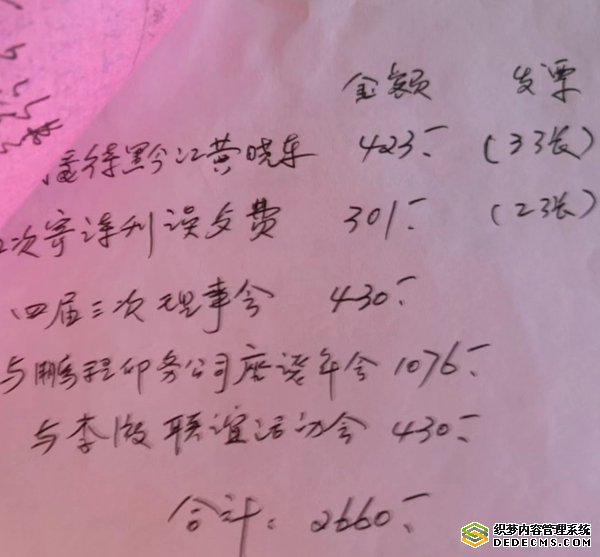 金额 发票
接待黔江黄晓东 423.- (33张)
次寄诗刊误交费 301.- (23张)
四届三次理事会 430.-
与鹏程印务公司座谈年会 1076.-
与李波联谊活动会 430.-
合计: 2660.-
织梦内容管理系统
DEDECMS.COM